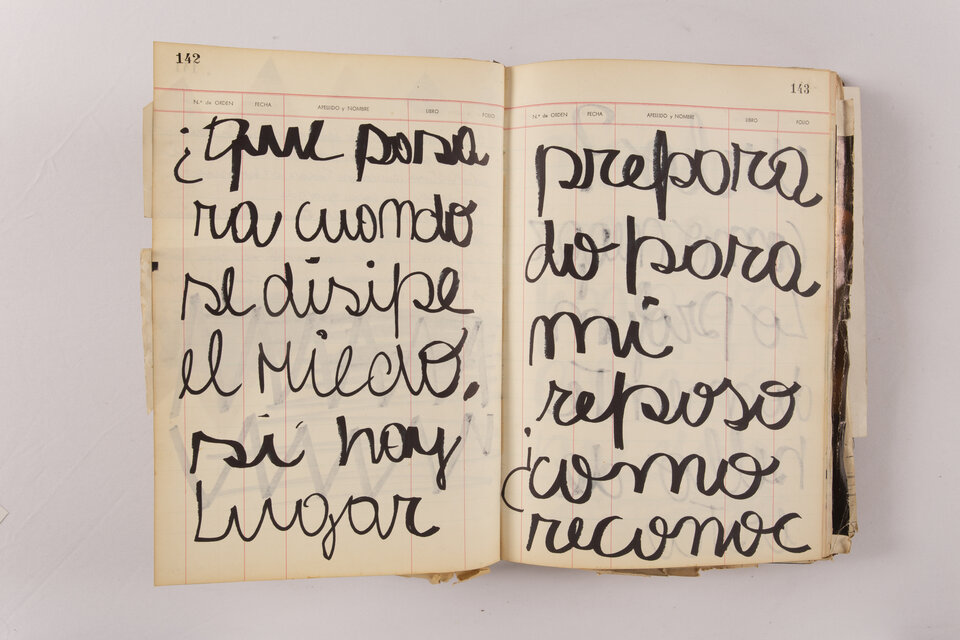 142
N.º de ORDEN FECHA APELLIDO y NOMBRE LIBRO FOLIO
¿Que pasa
ra cuando
se disipe
el miedo,
si hay
Lugar
143
N.º de ORDEN FECHA APELLIDO y NOMBRE LIBRO FOLIO
prepara
do para
mi
reposo
¿como
reconoc